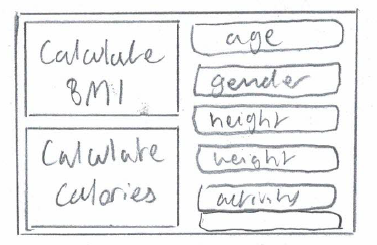 Calculate
BMI
Calculate
Calories
age
gender
height
weight
activity